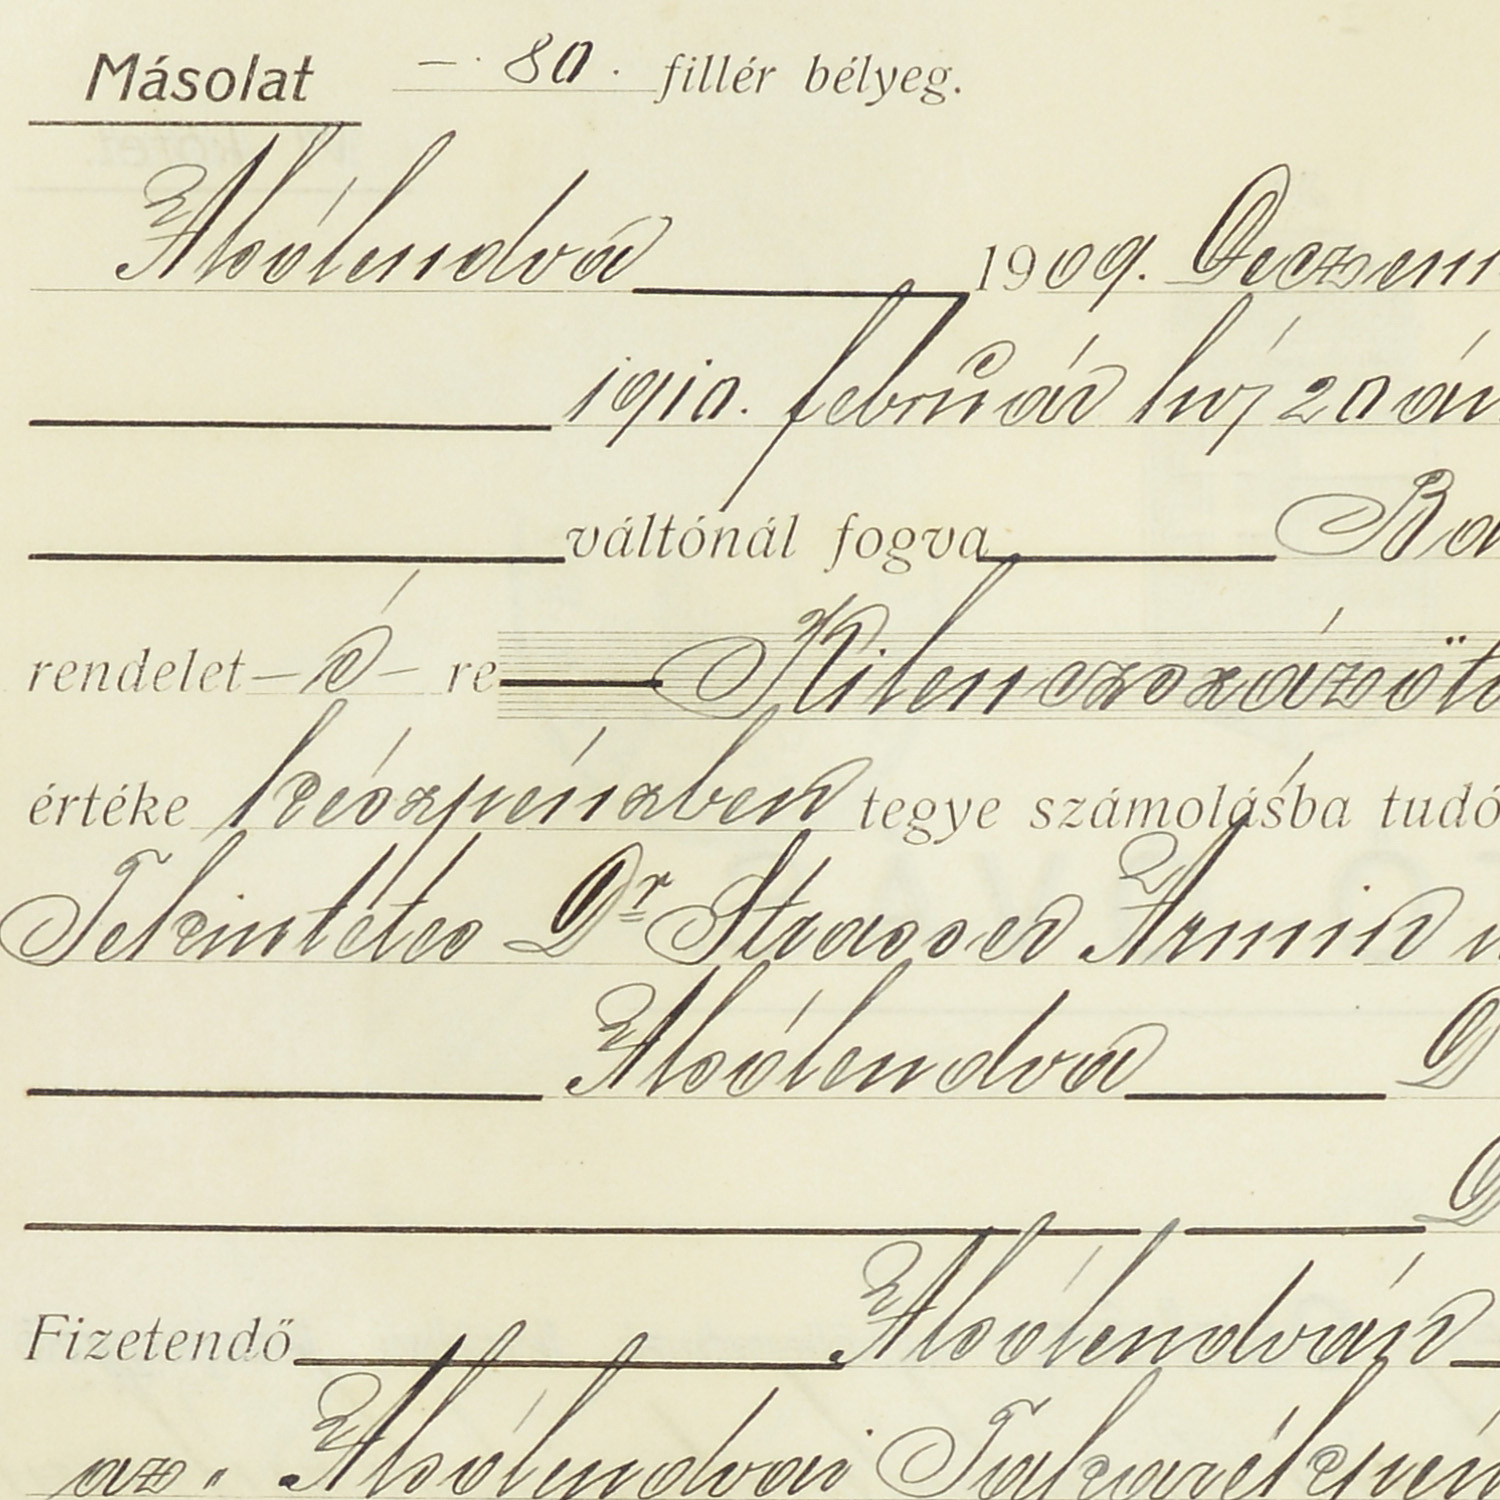 Másolat —· 80 · fillér bélyeg.
Alsólendva 1909. Deczem
1910. február hó 20 án
váltónál fogva Ba
rendelet—é— re Kilenczszázöt
értéke készpénzben tegye számolásba tudó
Tekintetes Dr Strasser Ármin
Alsólendva D
D
Fizetendő Alsólendván
az „ Alsólendvai Takarékpén